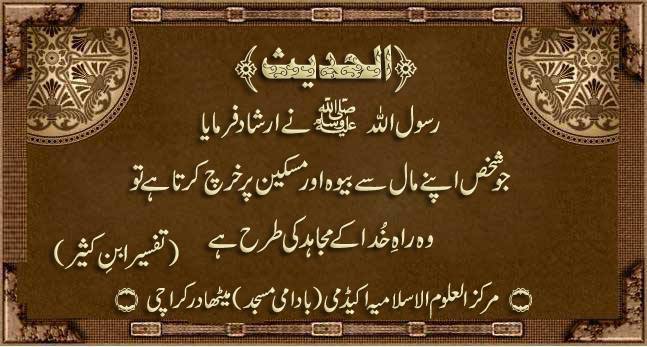 ﴿الحدیث﴾
رسول اللہ ﷺ نے ارشاد فرمایا
جو شخص اپنے مال سے بیوہ اور مسکین پر خرچ کرتا ہے تو
وہ راہِ خُدا کے مجاہد کی طرح ہے (تفسیر ابنِ کثیر)
مرکز العلوم الاسلامیہ اکیڈمی (بادامی مسجد) میٹھادر کراچی